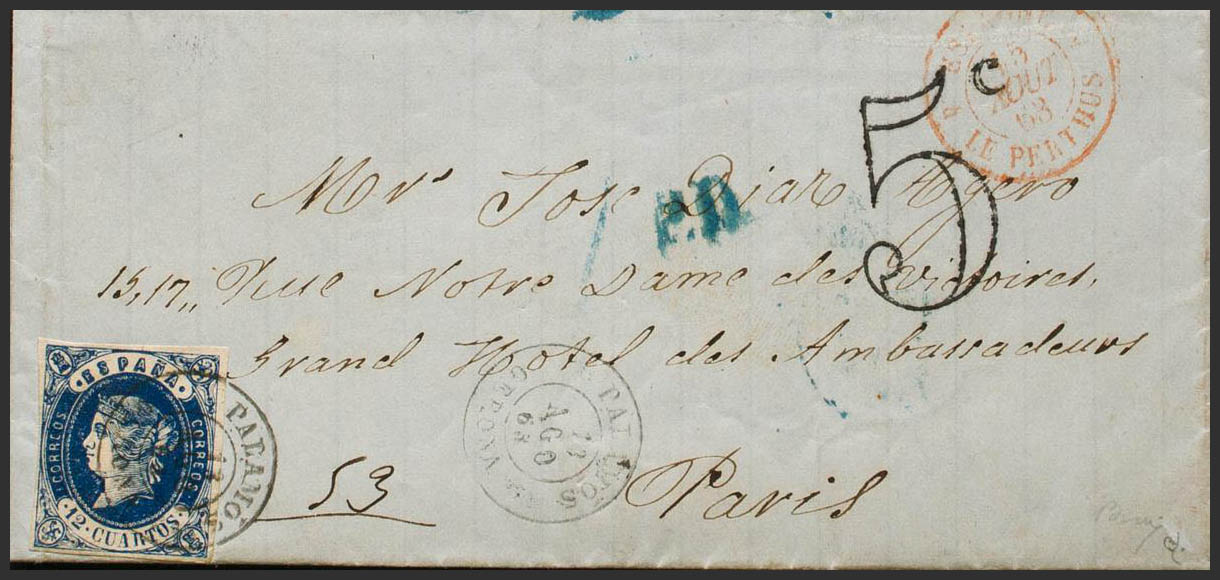 5c
15
AOUT
63
LE PERTHUS
Mrs Jose Diaz Agero
P.D.
15,17,, Rue Notre Dame des Victoires,
Grand Hotel des Ambassadeurs
ESPAÑA
CORREOS
CORREOS
12 CUARTOS
PALAMÓS
PALAMOS
AGO
63
GERONA
53
Paris